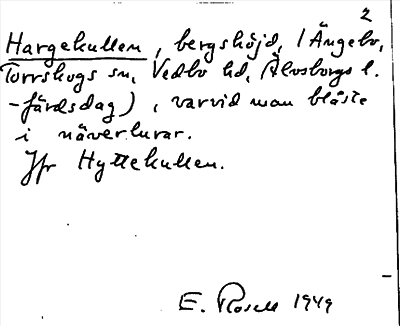 2
Hargekullen, bergshöjd, (Ängebo,
Torrskogs sn, Vedbo hd, Älvsborgs l.
-färdsdag), varvid man blåste
i näverlurar.
Jfr Hyttekullen.
E. Rosell 1949